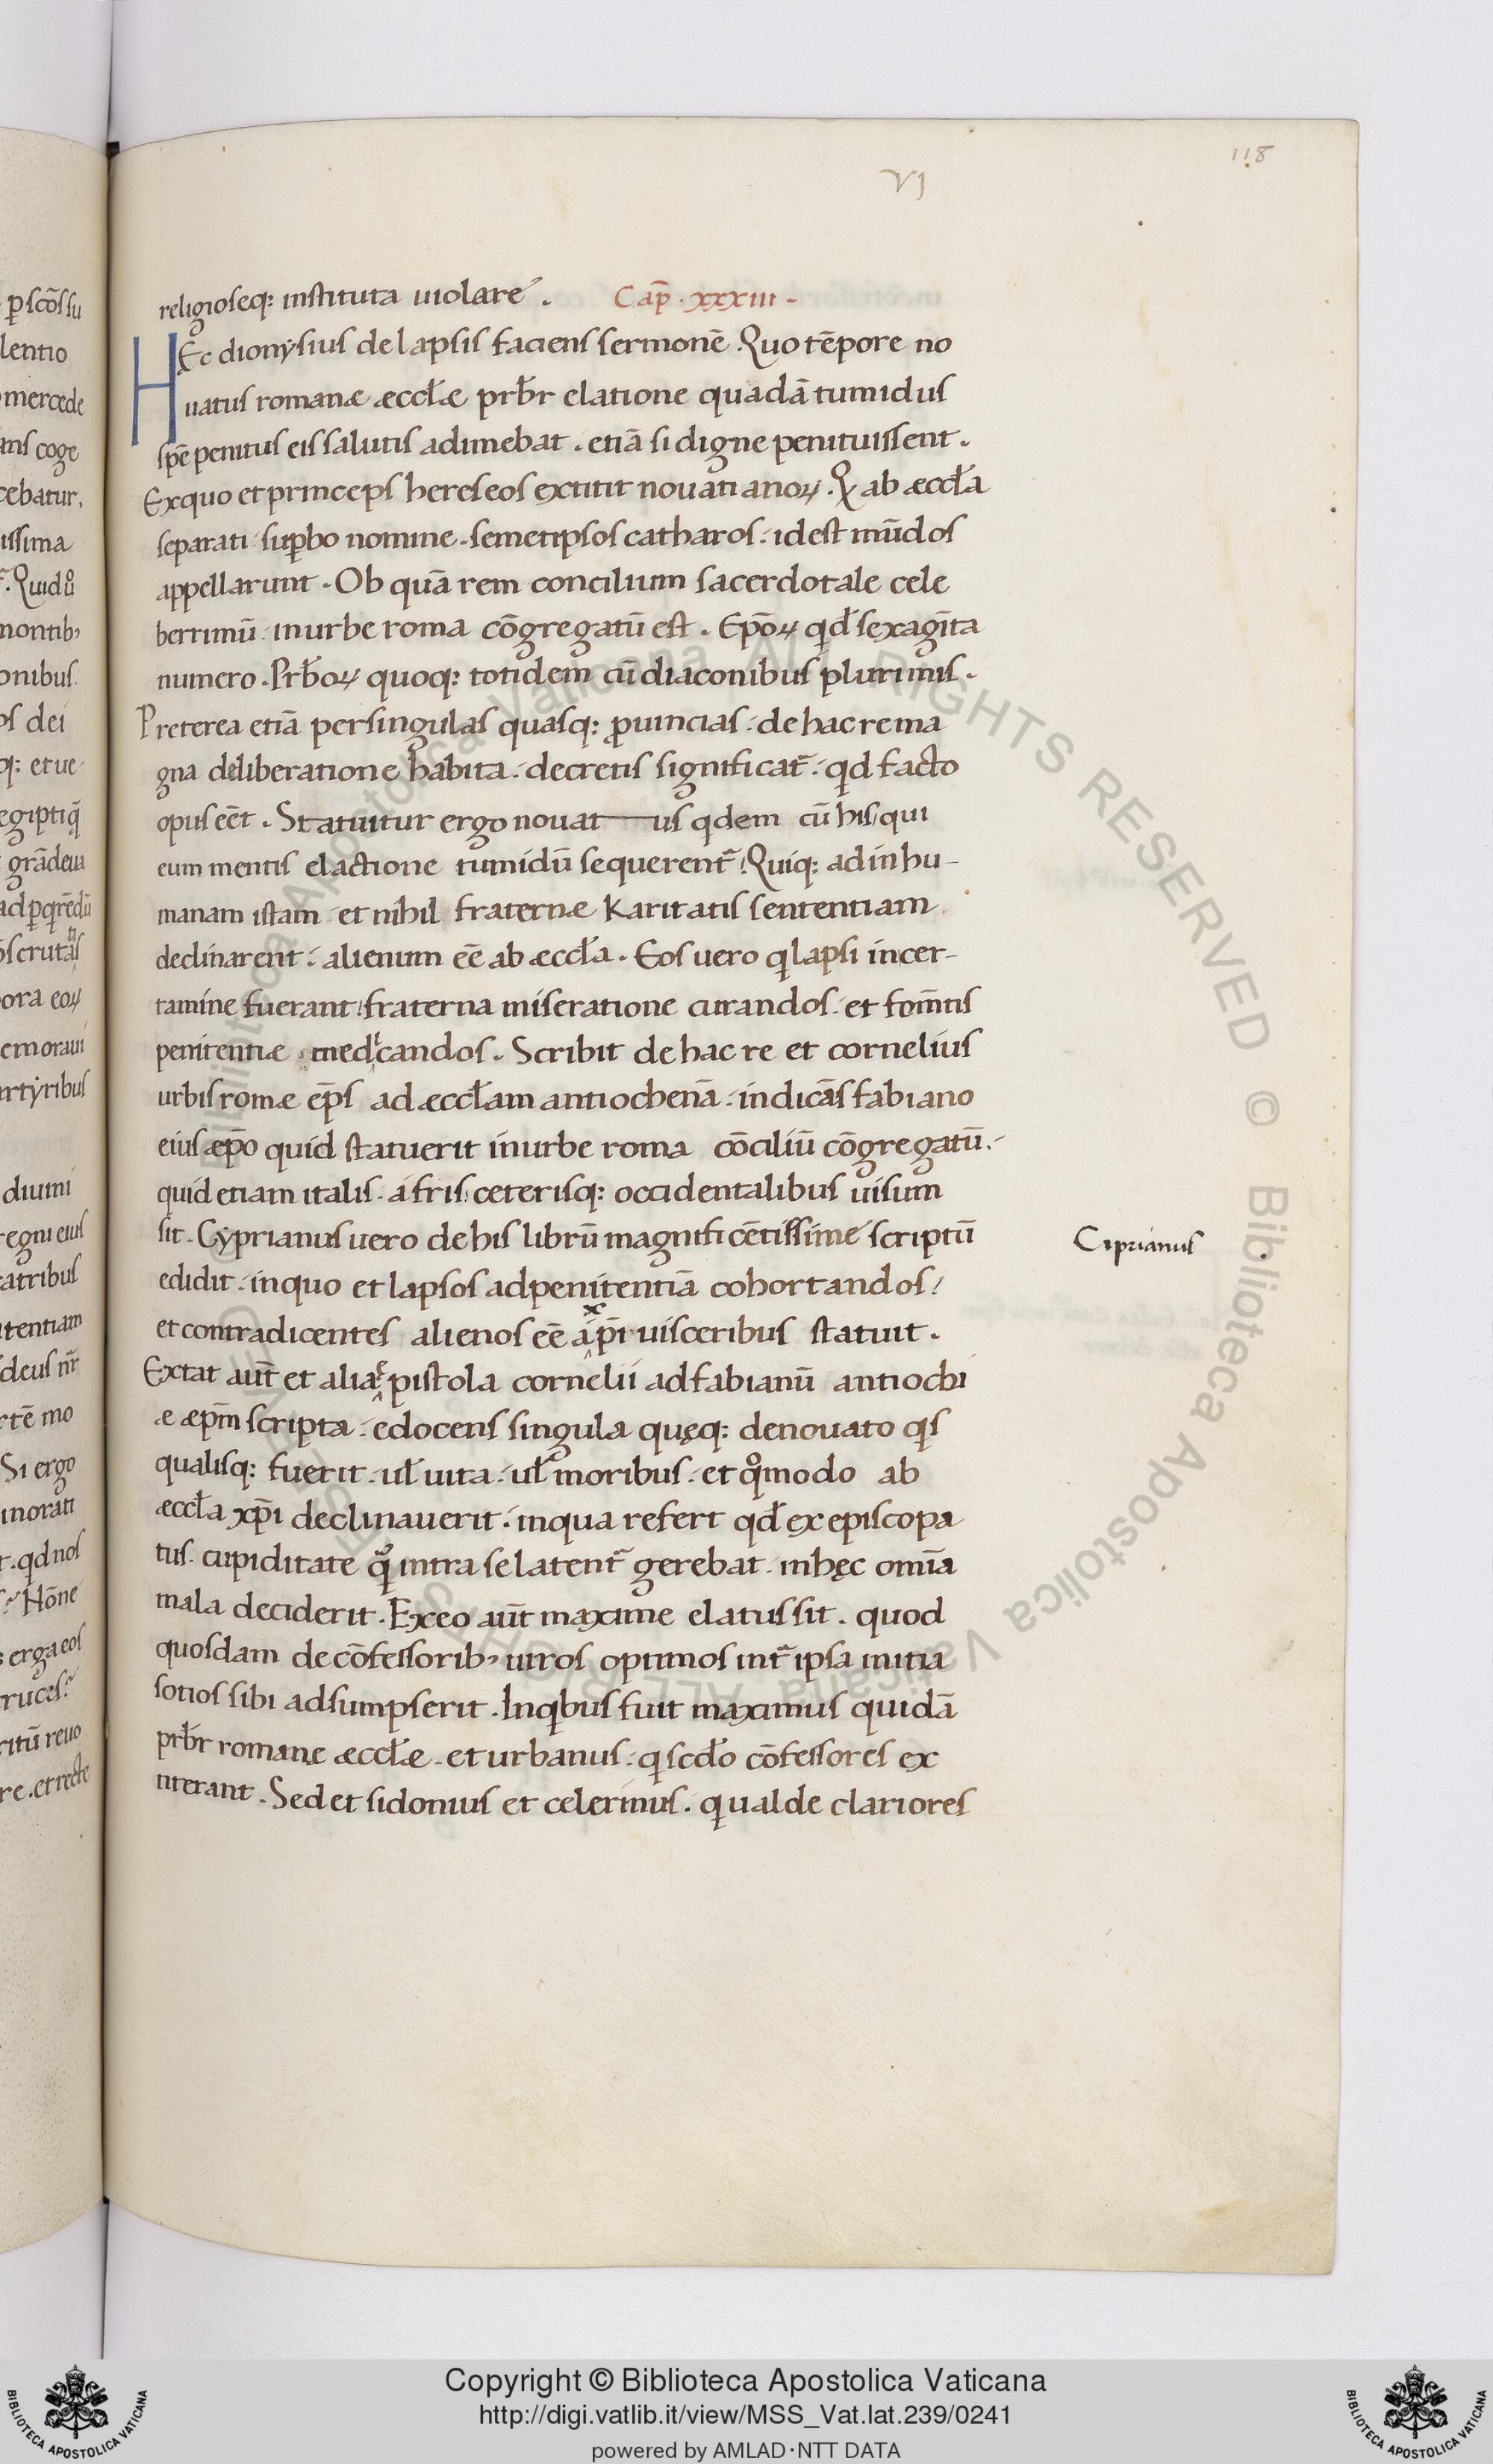 118
VI
religioseq: instituta uiolare. Cap̄. xxxiii.
HĘc dionẏsius de lapsis faciens sermonē. Quo tēpore no
uatus romanæ æccłæ prb̄r elatione quadā tumidus
spē penitus eis salutis adimebat. etiā si digne penituissent.
Exquo et princeps hereseos extitit nouatianoꝝ. Q ab æccła
separati suꝑbo nomine. semetipsos catharos. idest mūdos
appellarunt. Ob quā rem concilium sacerdotale cele
berrimū inurbe roma cōgregatū est. Ep̄oꝝ qđ sexagīta
numero. Prb̄oꝝ quoq: totidem cū diaconibus plurimis.
Preterea etiā persingulas quasq: ꝓuincias. dehacrema
gna deliberatione habita. decretis significat̄. qd facto
opus eēt. Statuitur ergo nouat us qdem cū his qui
eum mentis elactione tumidū sequerent̄. Quiq: adinhu-
manam istam et nihil fraternæ karitatis sententiam
declinarent. alienum eē ab æccła. Eos uero q lapsi incer-
tamine fuerant fraterna miseratione curandos. et fom̄tis
penitentiæ medicandos. Scribit de hac re et cornelius
urbis romæ ep̄s ad æccłam antiochenā. indicās fabiano
eius æp̄o quid statuerit inurbe roma cōciliū cōgregatū.
quid etiam italis. afris ceterisq: occidentalibus uisum
sit. Cẏprianus uero dehis librū magnificētissime scriptū
edidit. inquo et lapsos adpenitentiā cohortandos
et contradicentes alienos eē a xp̄i uisceribus statuit.
Extat aut̄ et alia epistola cornelii adfabianū antiochi
æ æp̄m scripta. edocens singula quęq: denouato qs
qualisq: fuerit. uł uita. uł moribus. et qomodo ab
æccła xp̄i declinauerit. inqua refert qđ ex episcopa
tus cupiditate quā intra se latent̄ gerebat. inhęc omīa
mala deciderit. Exeo aut̄ maxime elatus sit. quod
quosdam de cōfessorib; uiros optimos int̄ ipsa initia
sotios sibi adsumpserit. Inqbus fuit maximus quidā
prb̄r romanę æccłæ. et urbanus. q scđo cōfessores ex
titerant. Sed et sidonius et celerinus. qualde clariores
Ciprianus
Copyright © Biblioteca Apostolica Vaticana
http://digi.vatlib.it/view/MSS_Vat.lat.239/0241
powered by AMLAD·NTT DATA